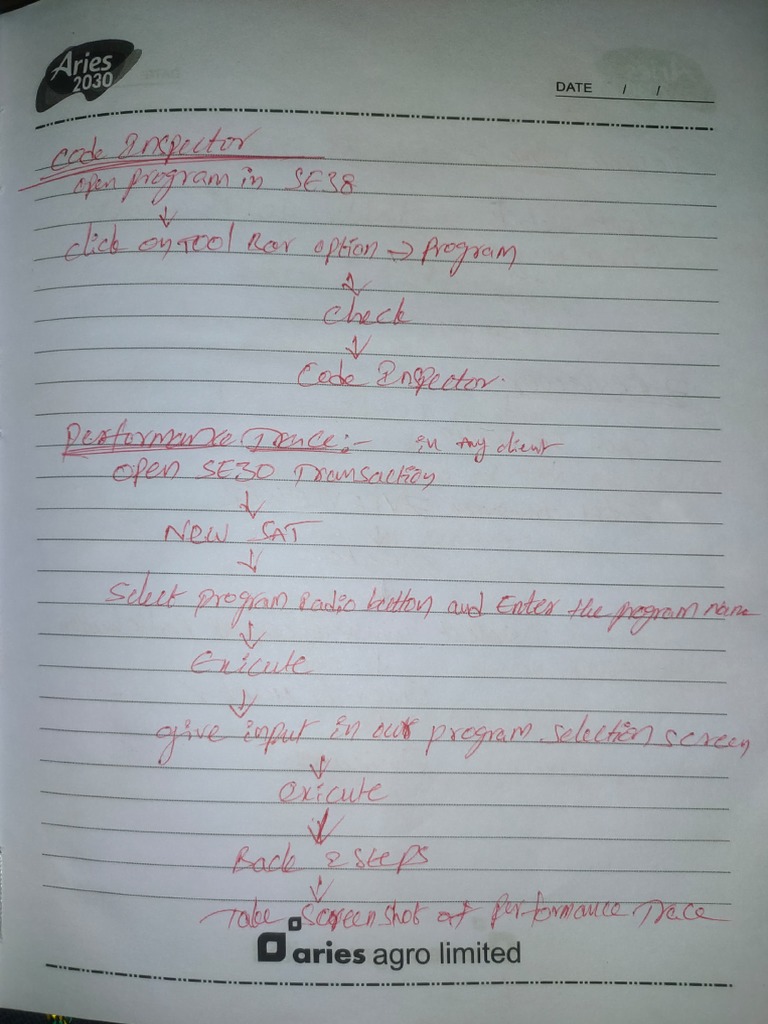 Aries
2030
DATE / /
Code Inspector
open program in SE38
↓
click on Tool Bar option → program
↓
check
↓
Code Inspector.
Performance Trace:- in any client
open SE30 Transaction
↓
New SAT
↓
Select program Radio button and Enter the program name
↓
Exicute
↓
give input in our program selection screen
↓
exicute
↓
Back 2 steps
↓
Take Screenshot of performance Trace
aries agro limited